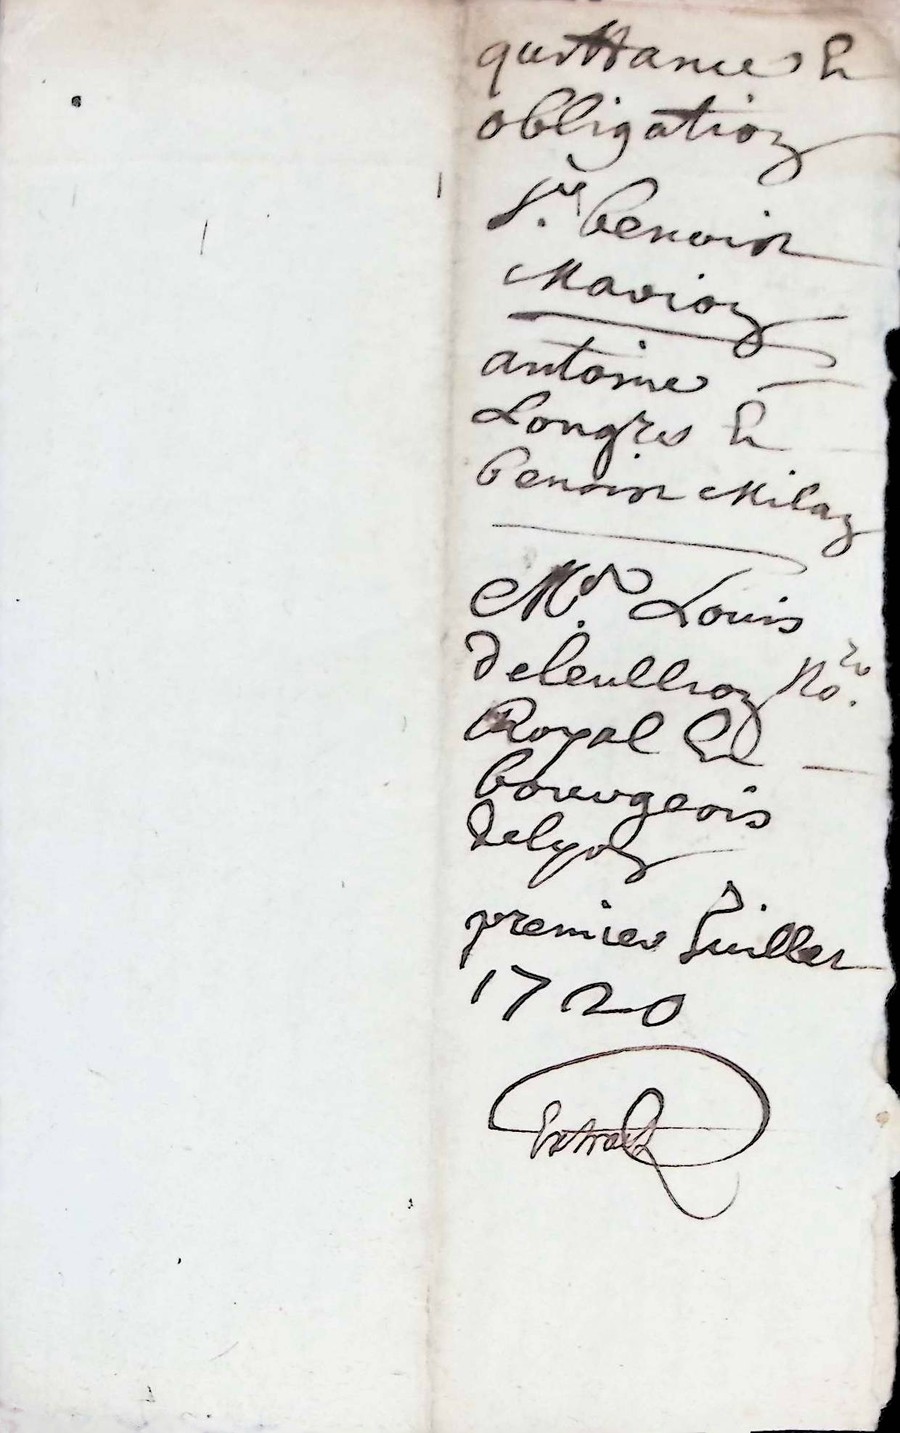 quittance et
obligation
Sr. benoist
Marion
antoine
Longris et
benoist Milan
Me. Louis
deleullion No.re
Royal et
bourgeois
delyon
premier Juillet
1720
Extrait